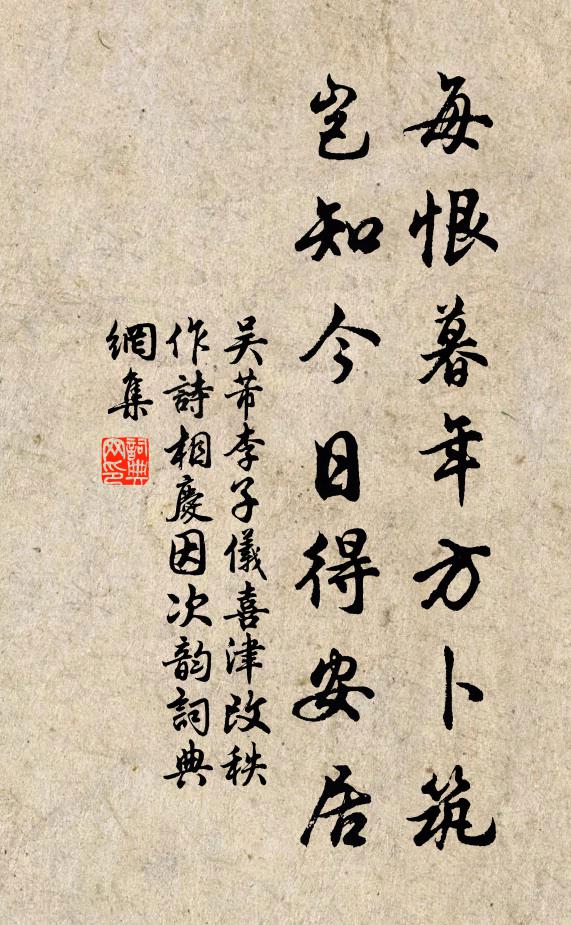 每恨暮年方卜筑
岂知今日得安居
吴芾李子儀喜津改秩
作詩相慶因次韵詞典
網集
詞典
网印